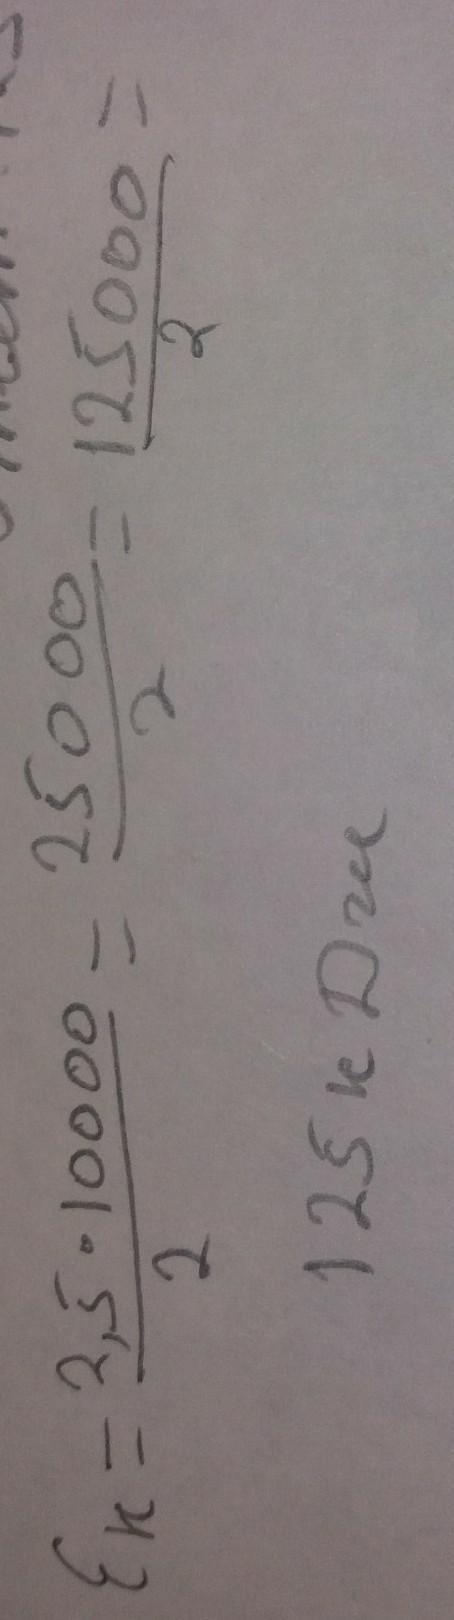 Eк = 2,5·10000/2 = 25000/2 = 125000/2 =
125 кДж